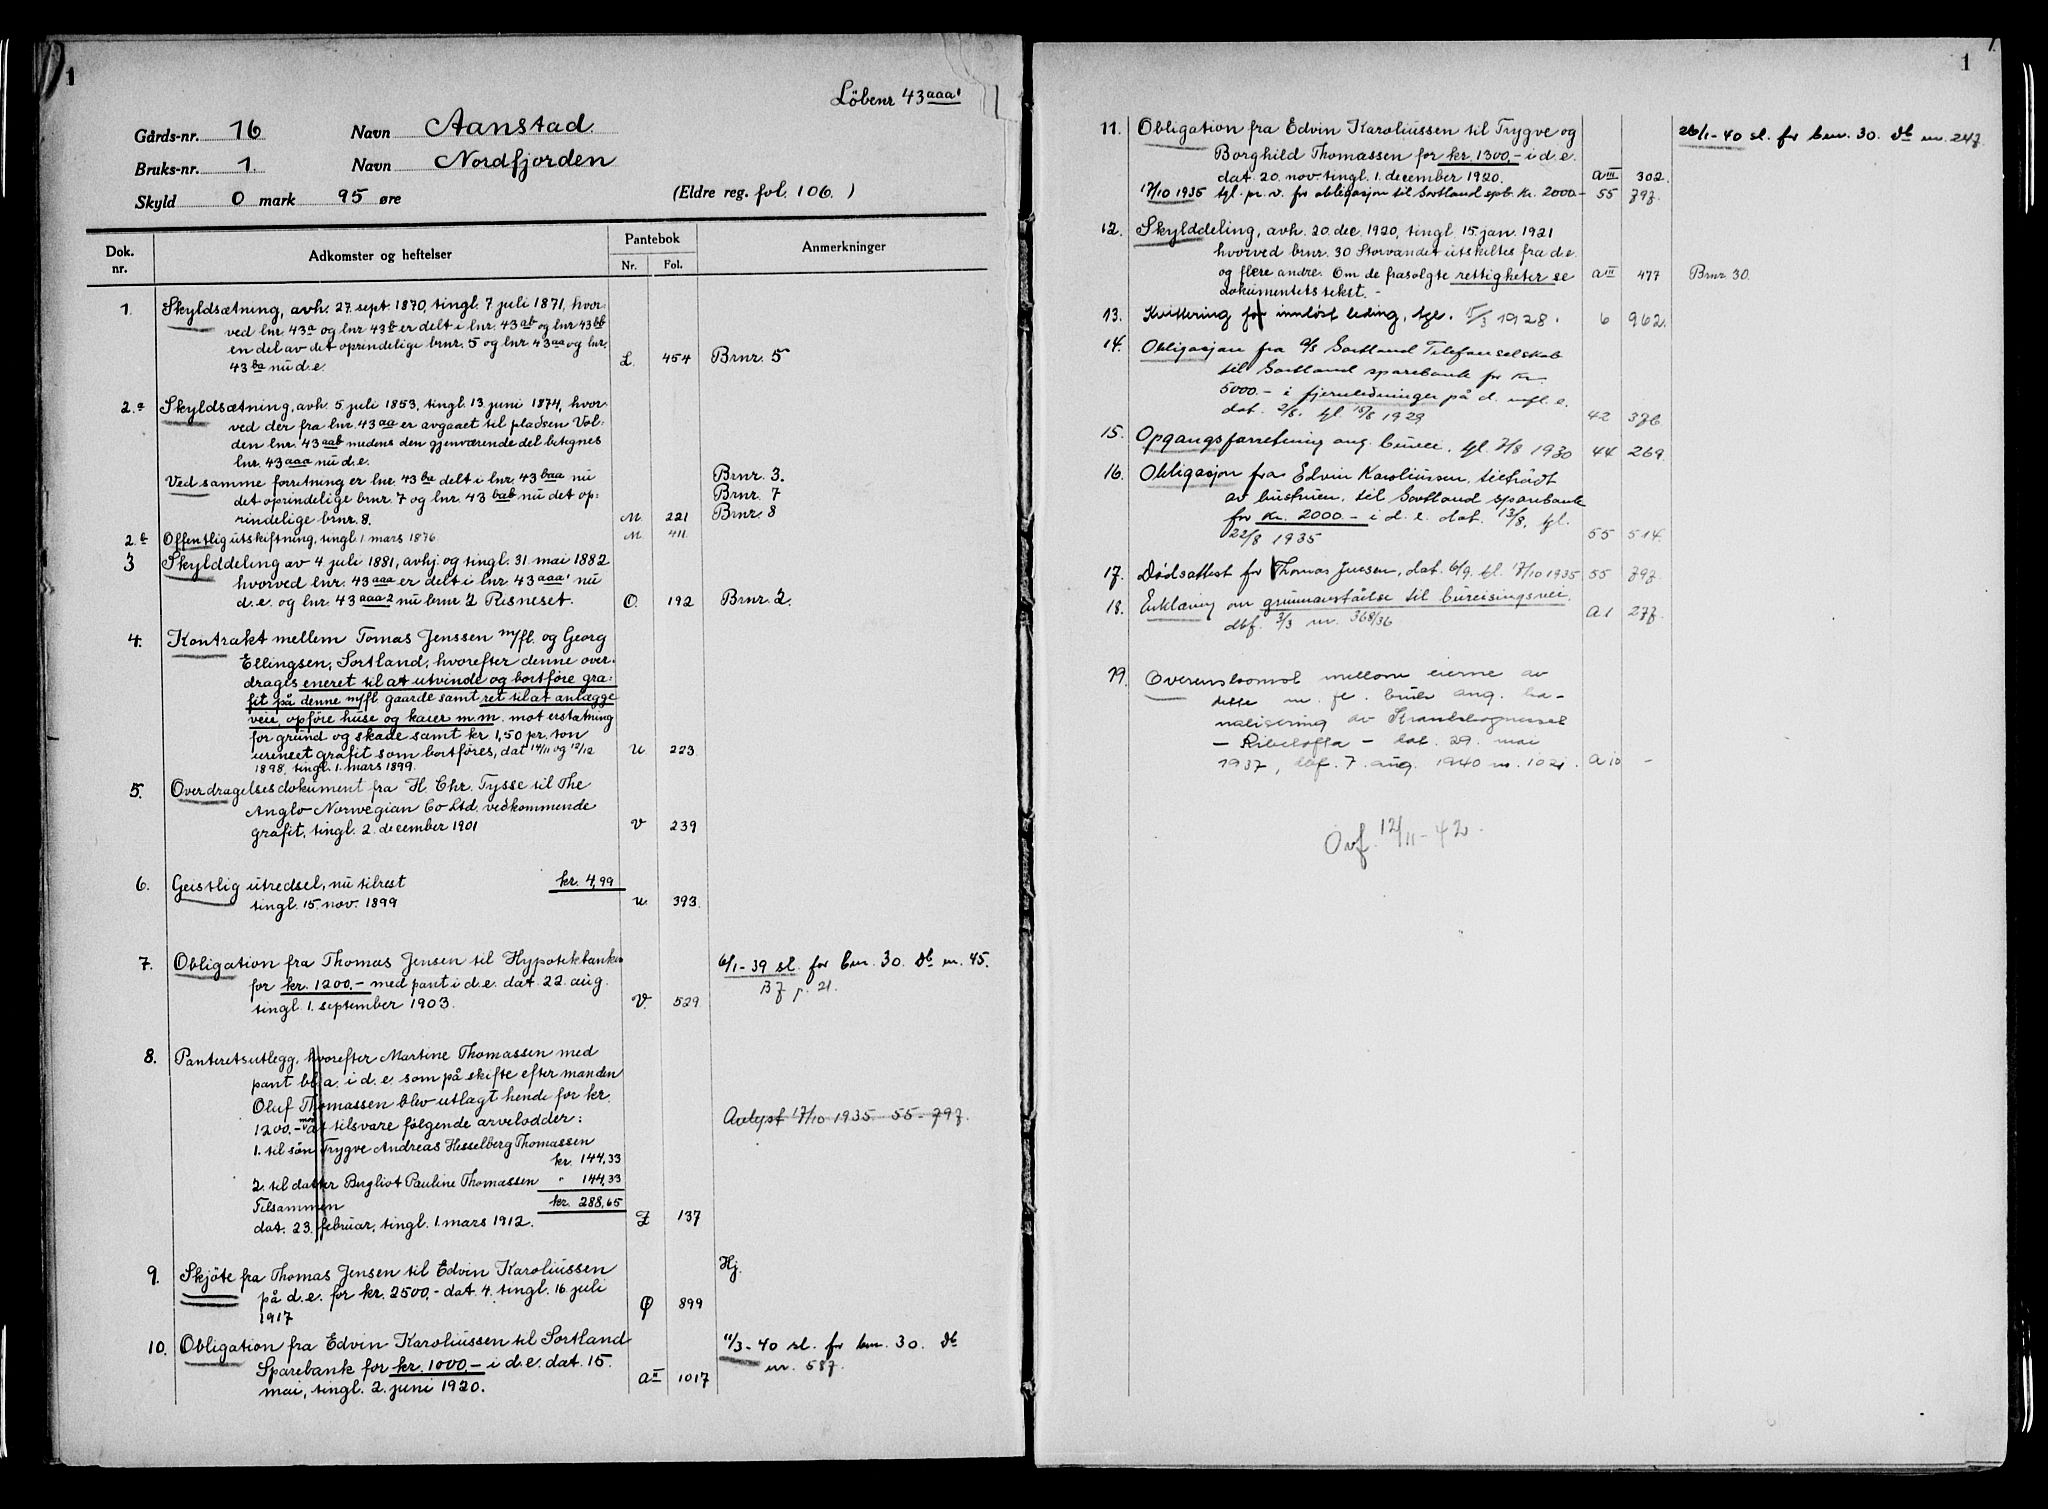 1
Löbenr 43aaa¹
Gårds-nr. 16 Navn Aanstad.
Bruks-nr. 1. Navn Nordfjorden
Skyld 0 mark 95 øre (Eldre reg. fol. 106.)
Dok. nr. Adkomster og heftelser Pantebok Anmerkninger
Nr. Fol.
1. Skyldsætning, avh. 27. sept. 1870, tingl. 7 juli 1871, hvor-
ved lnr. 43a og lnr 43b er delt i lnr. 43ab og lnr 43bb
en del av det oprindelige brnr. 5 og lnr 43aa og lnr.
43ba nu d.e. L. 454 Brnr. 5
2.a Skyldsætning, avh. 5 juli 1853, tingl. 13. juni 1874, hvor-
ved der fra lnr. 43aa er avgaaet til pladsen Vol-
den lnr. 43aab medens den gjenværende del betegnes
lnr. 43aaa nu d.e.
Ved samme forretning er lnr. 43ba delt i lnr. 43baa nu Brnr. 3.
det oprindelige brnr. 7 og lnr. 43bab nu det op- Brnr. 7
rindelige brnr. 8. M. 221 Brnr. 8
2.b Offentlig utskiftning, tingl. 1 mars 1876 M. 411.
3 Skylddeling av 4 juli 1881, avhj. og tingl. 31. mai 1882
hvorved lnr. 43aaa er delt i lnr 43aaa¹ nu
d.e. og lnr. 43aaa2 nu brnr 2 Risneset. O. 192 Brnr. 2.
4. Kontrakt mellem Tomas Jenssen m/fl. og Georg
Ellingsen, Sortland, hvorefter denne over-
drages eneret til at utvinde og bortføre gra-
fit på denne m/fl gaarde samt ret til at anlægge
veie, opføre huse og kaier m.m. mot erstatning
for grund og skade samt kr 1,50 pr. ton
urenset grafit som bortføres, dat 14/11 og 12/12 U 223
1898, tingl. 1. mars 1899.
5. Overdragelsesdokument fra H. Chr. Tysse til The
Anglo Norwegian Co Ltd. vedkommende
grafit, tingl. 2. december 1901 V 239
6. Geistlig utredsel, nu tilrest kr. 4,99
tingl. 15. nov. 1899 U. 393.
7. Obligation fra Thomas Jensen til Hypotekbanken 6/1-39 sl. for bnr. 30. Db nr. 45.
for kr. 1200.- med pant i d.e. dat. 22. aug. B7 p. 21.
tingl. 1. september 1903. V. 529
8. Panteretsutlegg, hvorefter Martine Thomassen med
pant bl.a. i d.e. som på skifte efter manden
Oluf Thomassen blev utlagt hende for kr.
1200.- mot at tilsvare følgende arvelodder: Avlyst 17/10 1935. 55-797.
1. til søn Trygve Andreas Hesselberg Thomassen
kr. 144,33
2. til datter Bergliot Pauline Thomassen " 144,33
Tilsammen kr. 288,65
dat. 23. februar, tingl. 1. mars 1912. Z 137
9. Skjöte fra Thomas Jensen til Edvin Karoliussen Hj.
på d.e. for kr. 2500.- dat. 4. tingl. 16 juli
1917 Φ 899
10. Obligation fra Edvin Karoliussen til Sortland 11/3-40 sl. for bnr. 30. Db
Sparebank for kr. 1000.- i d.e. dat. 15. nr. 587.
mai, tingl. 2. juni 1920. aII 1017
1
11. Obligation fra Edvin Karoliussen til Trygve og 26/1-40 sl. for bnr. 30. Db nr 247.
Borghild Thomassen for kr. 1300,- i d.e.
dat. 20. nov. tingl. 1. december 1920. aIII 302.
17/10 1935 tgl. pr. v. for obligasjon til Sortland spb. kr. 2000.- 55 797.
12. Skylddeling, avh. 20 dec. 1920, tingl. 15. jan. 1921
hvorved brnr. 30 Storvandet utskiltes fra d.e.
og flere andre. Om de frasolgte rettigheter se aIII 477 Brnr 30.
dokumentets tekst.-
13. Kvittering for innløst leding, tgl. 5/3 1928. 6 962.
14. Obligasjon fra a/s Sortland Telefonselskab
til Sortland sparebank for kr.
5000.- i fjernledninger på d. m.fl. e.
dat. 2/8. tgl. 15/8 1929 42 376
15. Opgangsforretning ang. bureisn., tgl. 7/8 1930 44 269.
16. Obligasjon fra Edvin Karoliussen, tiltrådt
av hustruen, til Sortland sparebank
for kr. 2000.- i d.e. dat. 13/8, tgl.
22/8 1935 55 514.
17. Dødsattest for Thomas Jensen, dat. 6/9. tgl. 17/10 1935 55 797.
18. Erklæring om grunnavståelse til bureisingsvei.
dbf. 3/3 nr. 368/36 A1 277.
19. Overenskomst mellom eierne av
dette m. fl. bruk ang. ka-
nalisering av
dat. 29. mai
1937, dbf. 7. aug. 1940 nr. 1021. A10 -
Ovf. 12/11-42.